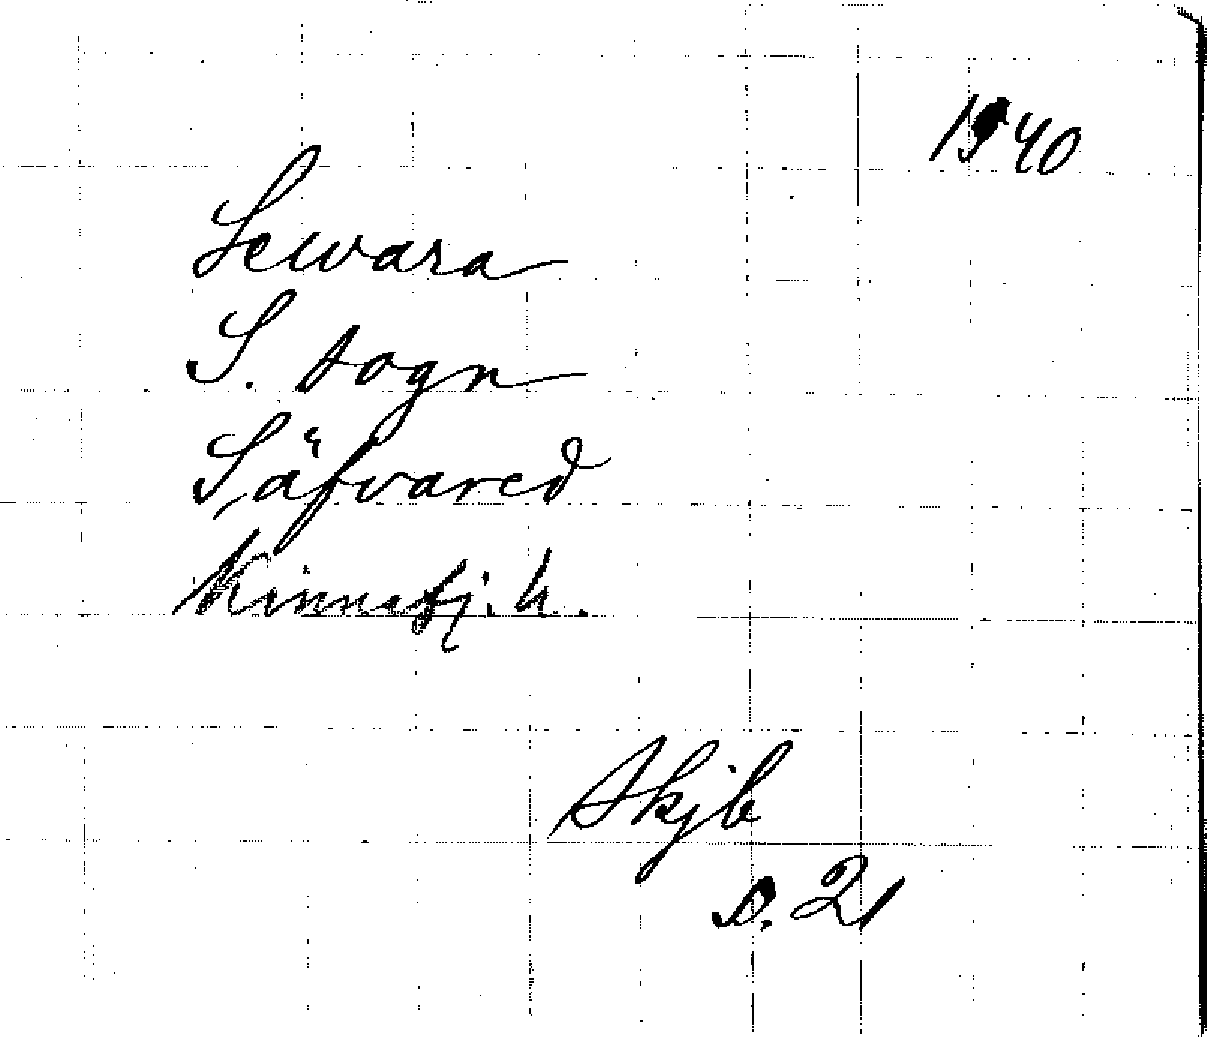 1540
Sewara
S. sogn
Säfvared
Kinnefj. h.
Skjb
s. 21